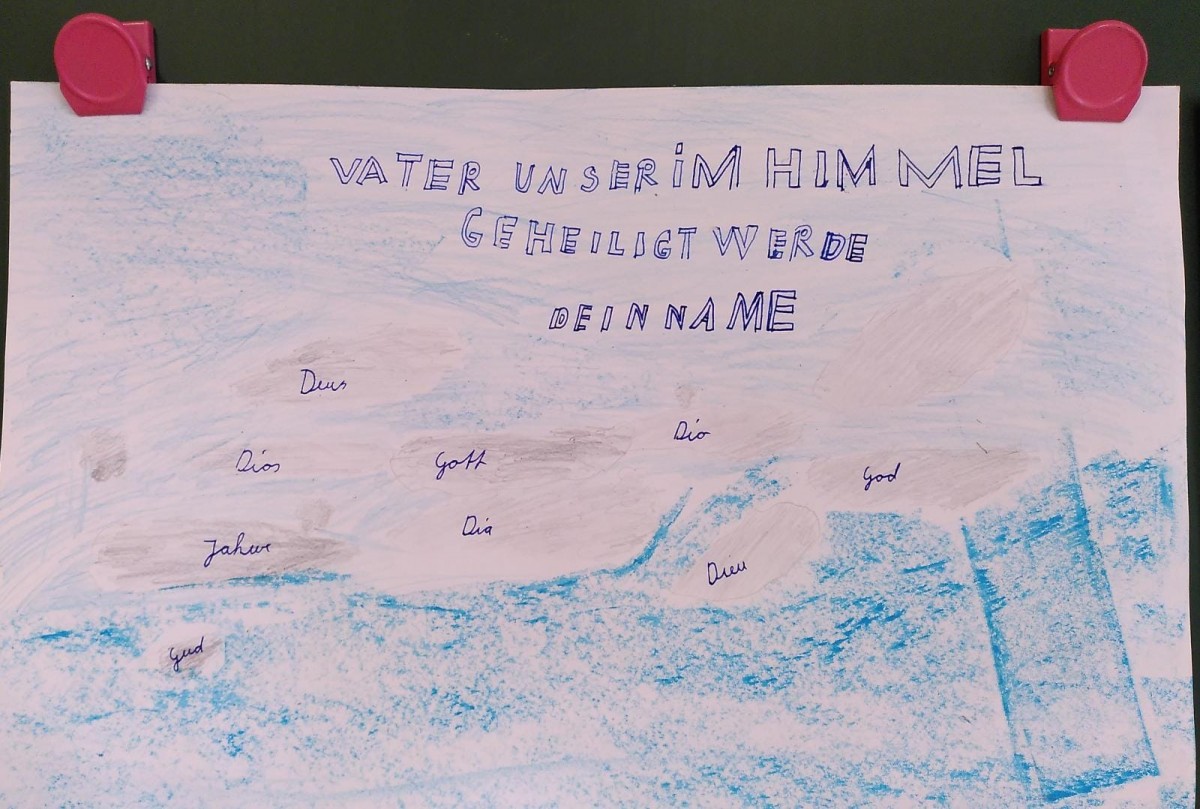 VATER UNSER IM HIMMEL
GEHEILIGT WERDE
DEIN NAME
Deus
Dio
Dios
Gott
God
Jahwe
Dia
Dieu
Gud